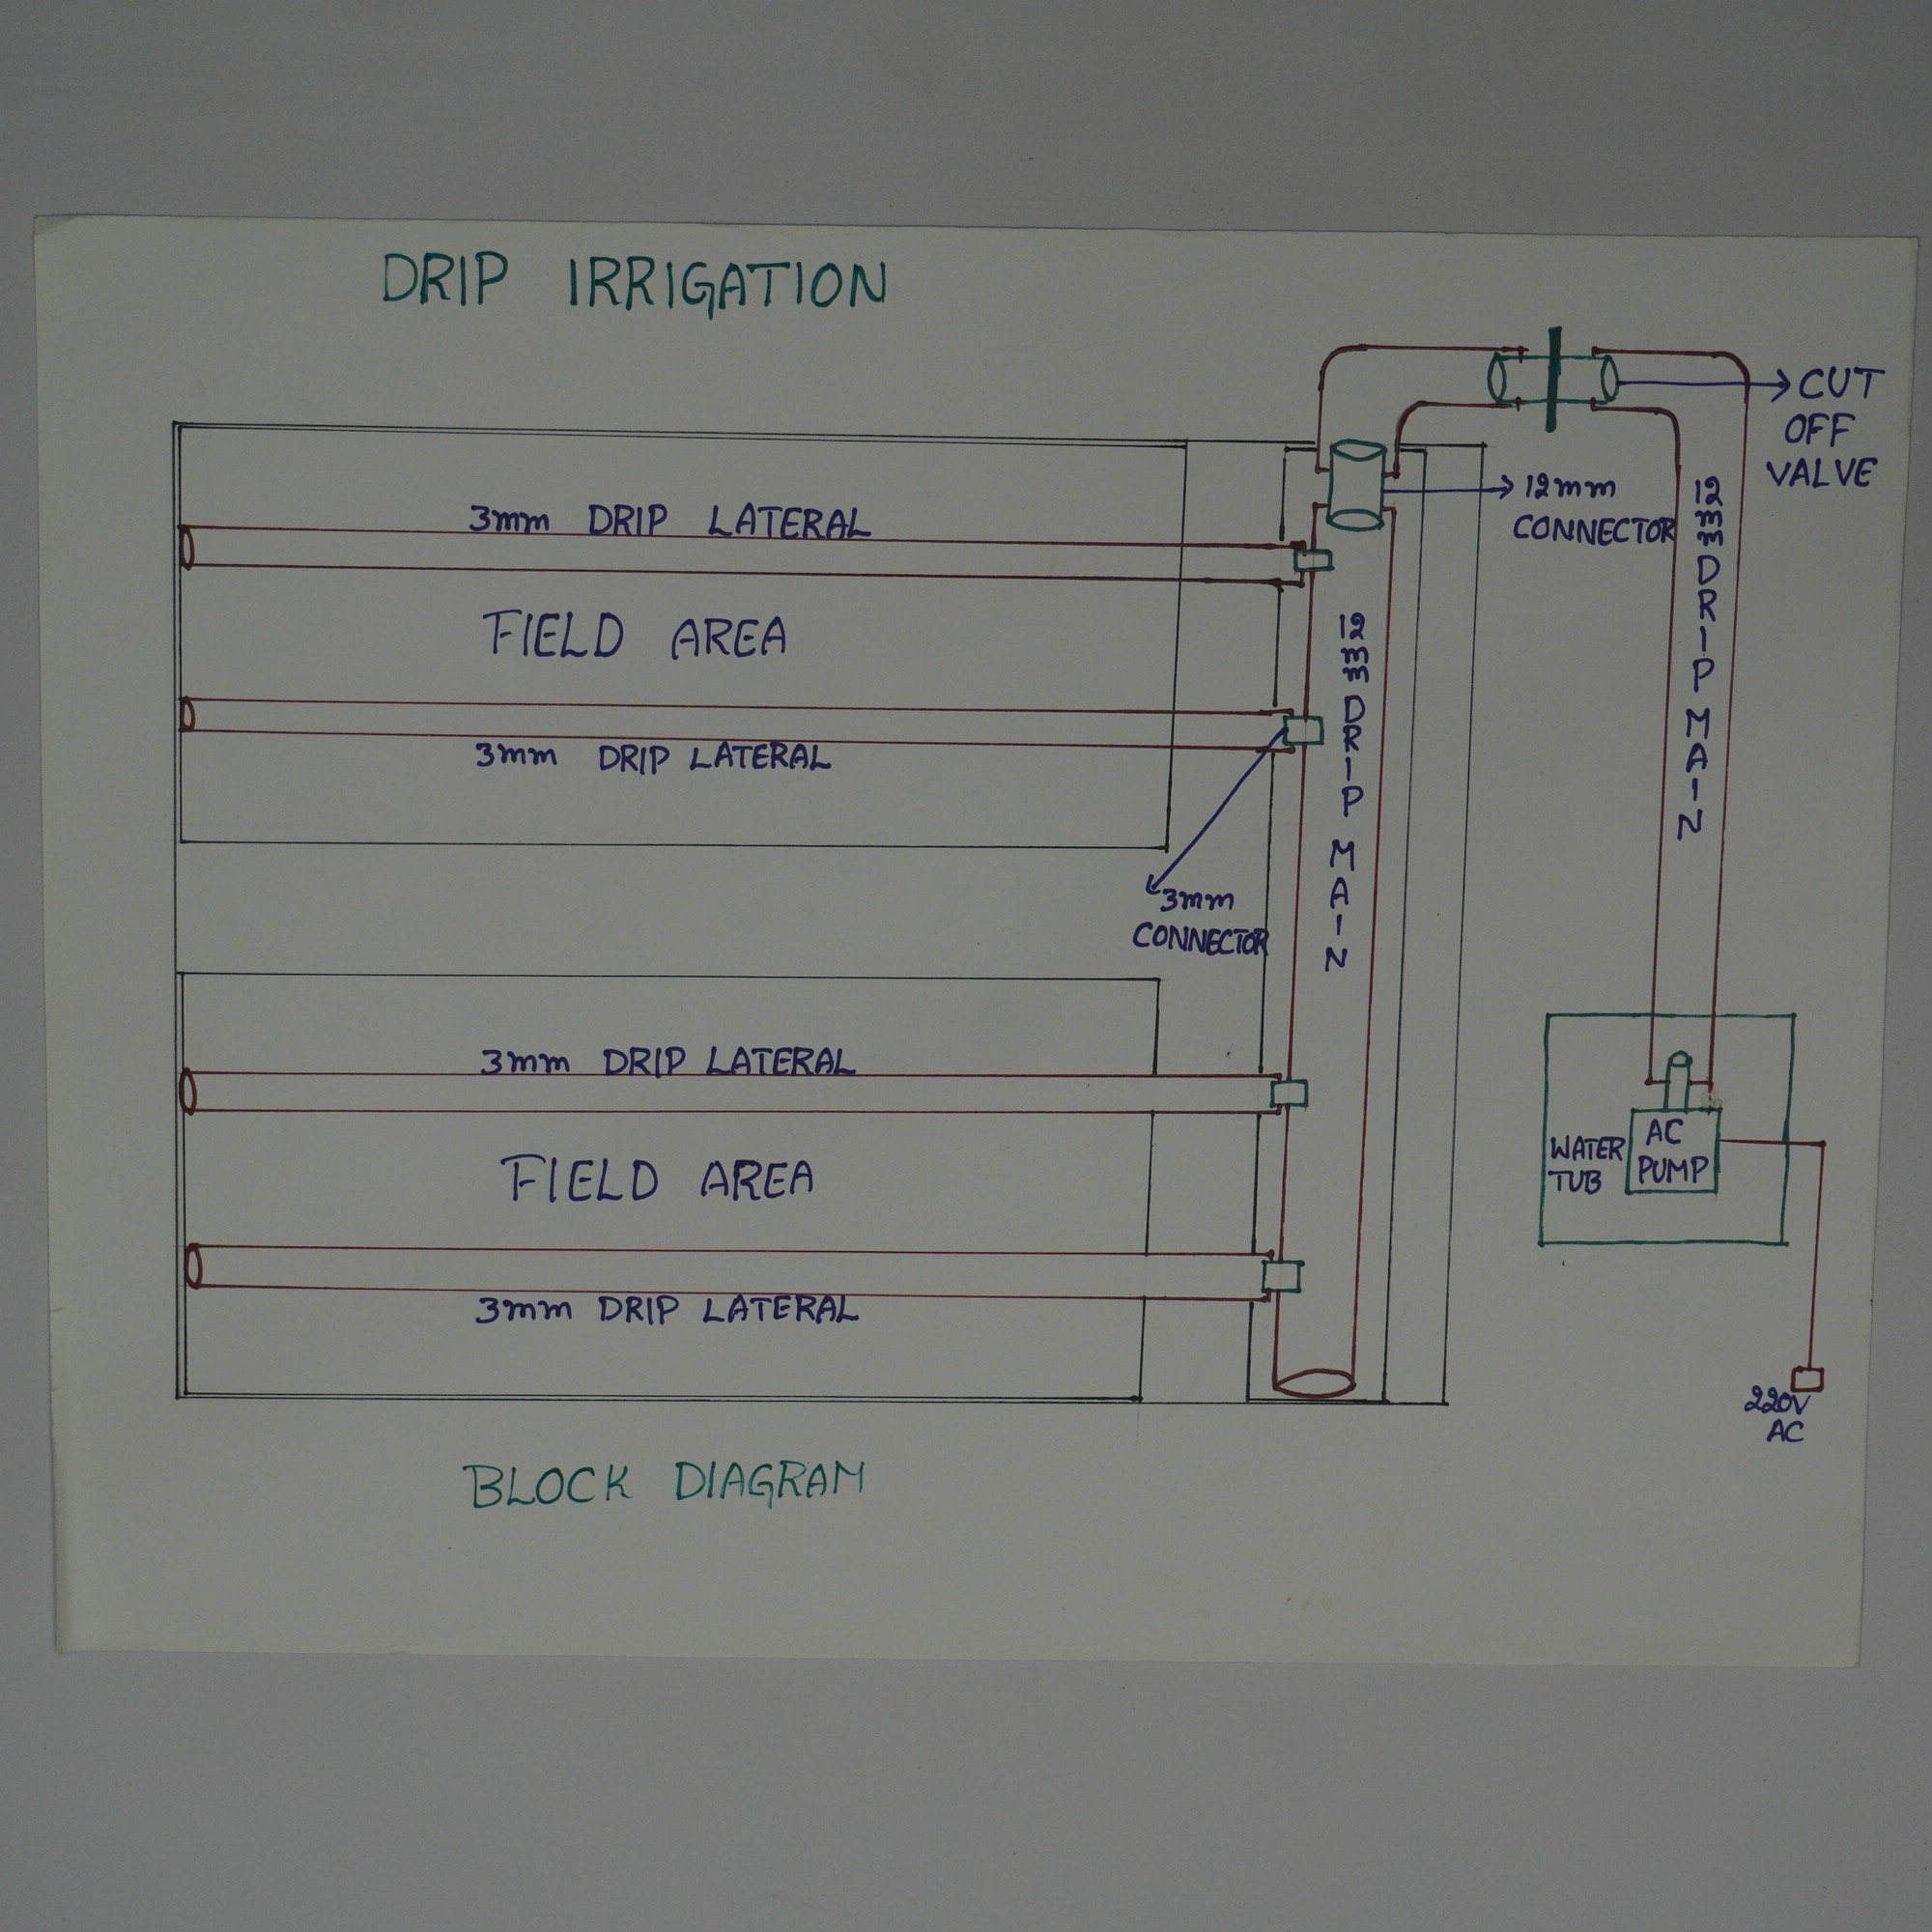 DRIP IRRIGATION
CUT
OFF
VALVE
12mm
CONNECTOR
12mm DRIP MAIN
3mm DRIP LATERAL
FIELD AREA
12mm DRIP MAIN
3mm DRIP LATERAL
3mm
CONNECTOR
3mm DRIP LATERAL
FIELD AREA
3mm DRIP LATERAL
WATER
TUB
AC
PUMP
220V
AC
BLOCK DIAGRAM